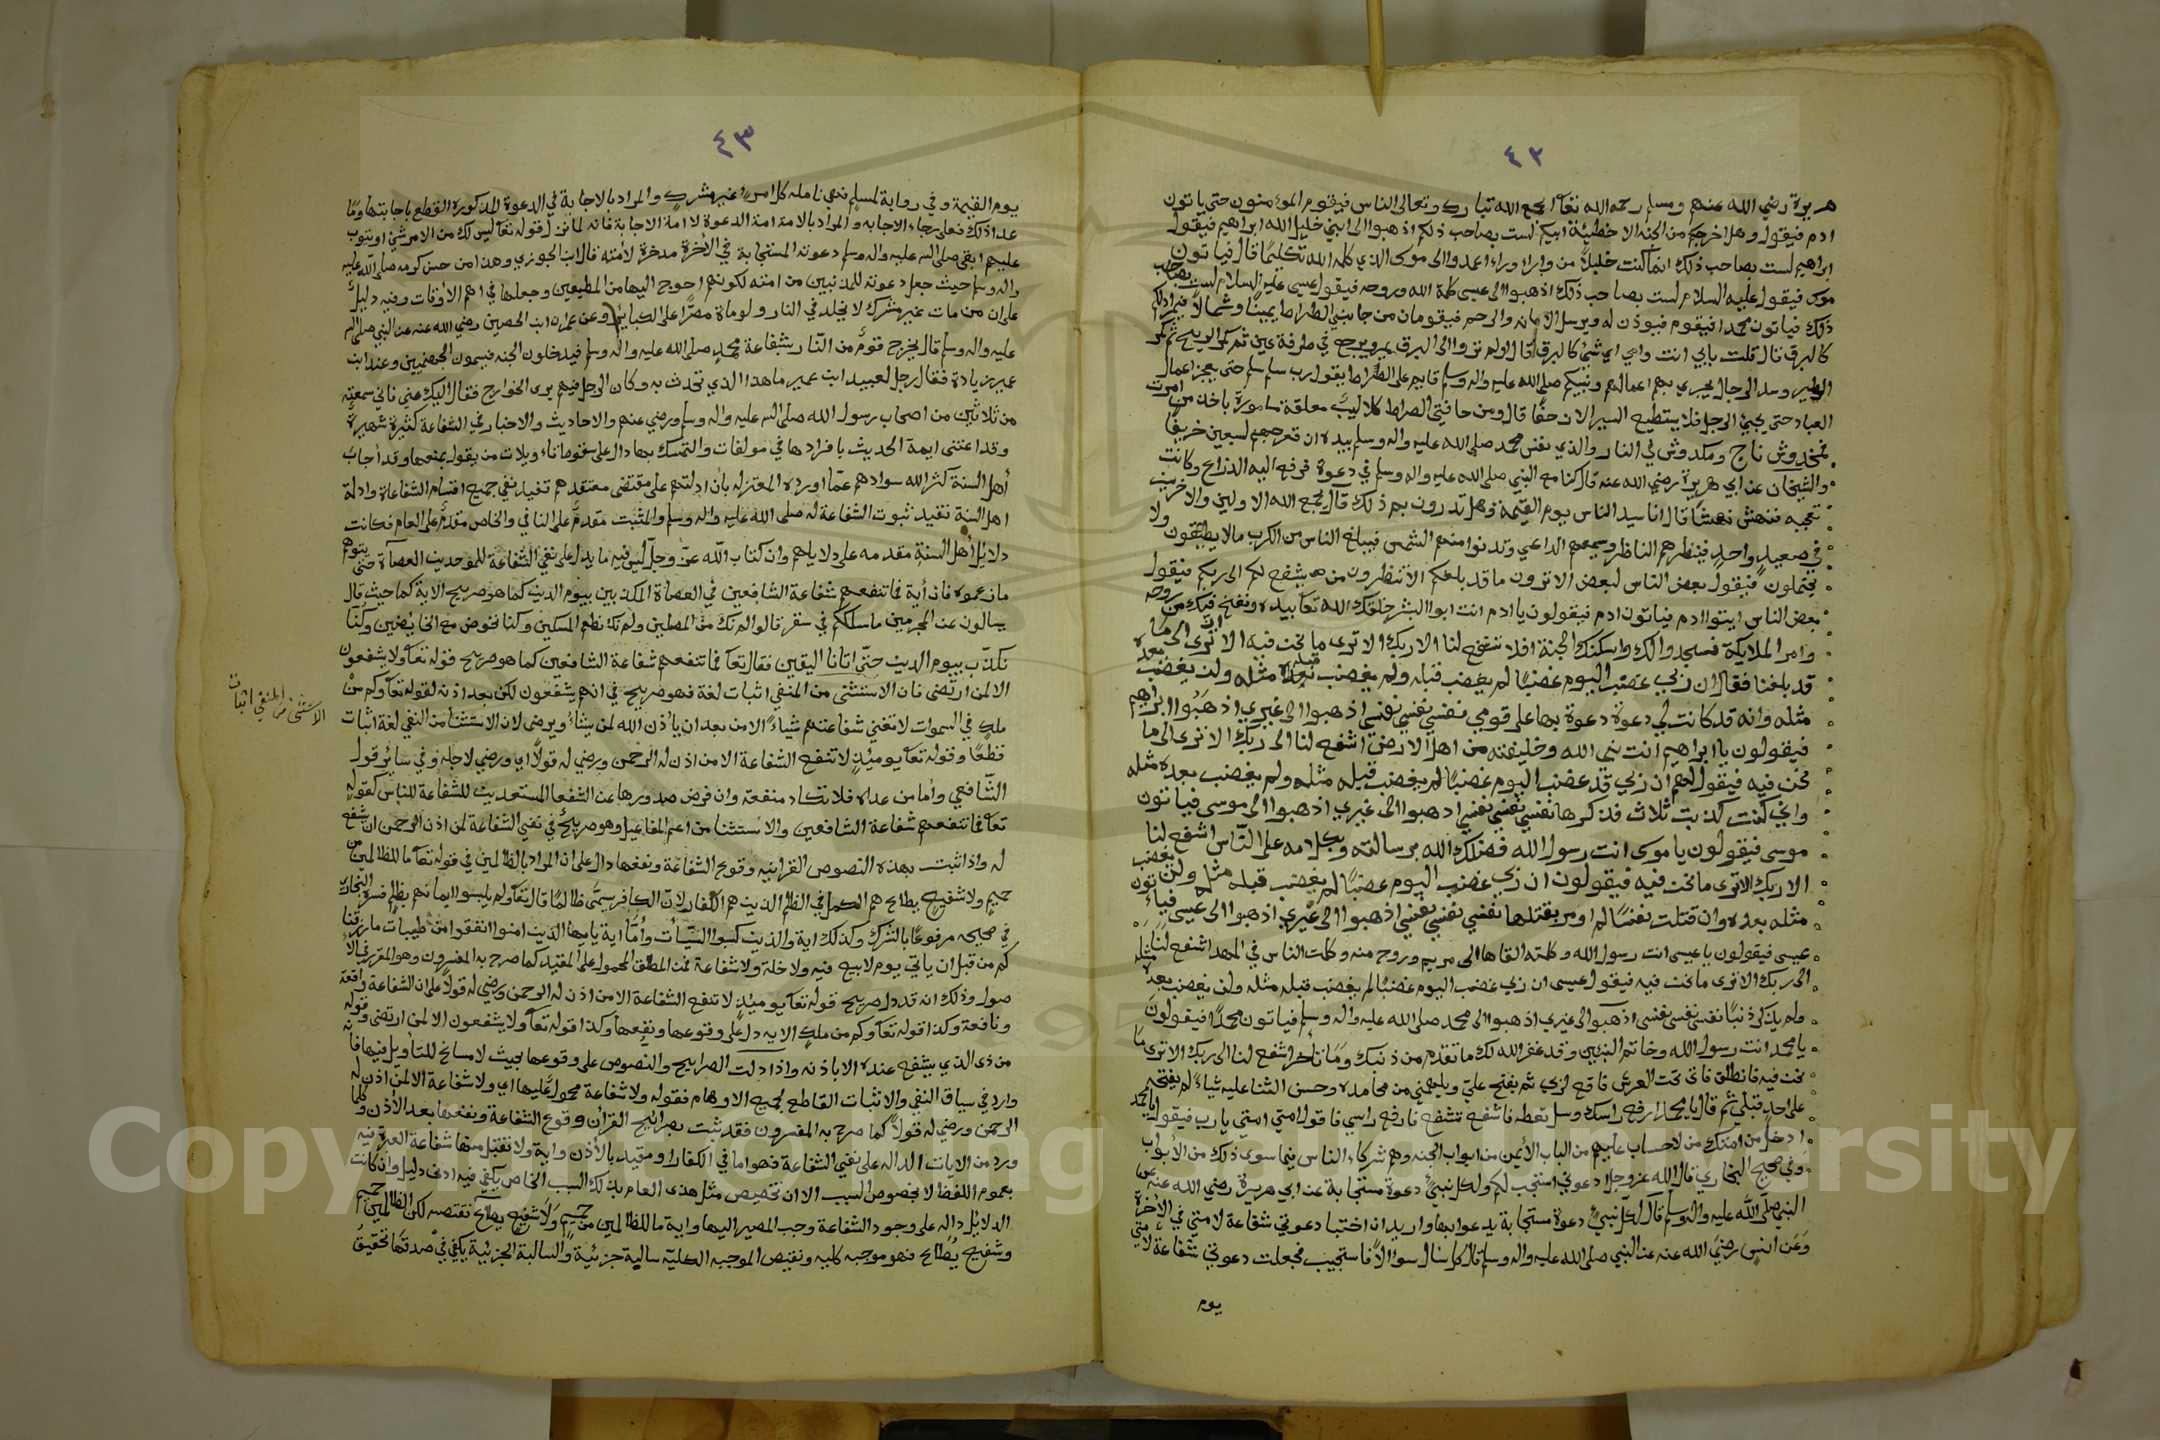 ٤٢
هريرة رضي الله عنهم ومسلم رحمه الله تعآ يجمع الله تبارك وتعالى الناس فيقوم المؤمنون حتى ياتون
ادم فيقول وهل اخرجكم من الجنه الا خطيئة ابيكم لست بصاحب ذلكم اذهبوا الى ابني خليل الله ابراهيم فيقول
ابراهيم لست بصاحب ذلك انما كنت خليلاً من وراء وراء اعمدوا الى موسى الذي كلمه الله تكليمًا قال فياتون
موسى فيقول عليه السلام لست بصاحب ذلك اذهبوا الى عيسى كلمة الله وروحه فيقول عيسى عليه السلام لست بصاحب
ذلك فياتون محمدا فيقوم فيوذن له ويرسل الامانه والرحم فيقومان من جانبي الصراط يمينًا وشمالًا فيمر اولكم
كالبرق قال قلت بابي انت وامي اي شيئ كالبرق قال اولم تروا الى البرق يمر ويرجع في طرفة عين ثم كمر الريح ثم كمر
الطير وسد الرجال يجري بهم اعمالهم ونبيكم صلى الله عليه واله وسلم قايم على الصراط يقول رب سلم سلم حتى يعجز اعمال
العباد حتى يجيئ الرجل فلا يستطيع السير الا زحفا قال ومن حافتي الصراط كلاليب معلقة مامورة باخذ من امرت
فمخدوش ناج ومكدوش في النار والذي نفس محمد صلى الله عليه واله وسلم بيده ان قعر جهنم لسبعين خريفًا
والشيخان عن ابي هريرة رضي الله عنه قال كنا مع النبي صلى الله عليه واله وسلم في دعوة فرفع اليه الذراع وكانت
تعجبه فنهش نهشًا قال انا سيد الناس يوم القيمة وهل تدرون بم ذلك قال يجمع الله الاولين والاخرين
في صعيدٍ واحدٍ فينظرهم الناظر ويسمعهم الداعي وتدنوا منهم الشمس فيبلغ الناس من الكرب مالا يطيقون ولا
يحتملون فيقول بعض الناس لبعض الا ترون ما قد بلغكم الا تنظرون من يشفع لكم الى ربكم فيقول
بعض الناس ايتوا ادم فياتون ادم فيقولون يا ادم انت ابوا البشر خلقك الله تعآ بيده ونفخ فيك من روحه
وامر الملايكة فسجدوا لك واسكنك الجنة افلا تشفع لنا الى ربك الا ترى ما نحن فيه الا ترى الى ما
قد بلغنا فقال ان ربي غضب اليوم غضبًا لم يغضب قبله ولم يغضب بعده مثله ولن يغضب بعده
مثله وانه قد كانت لي دعوة دعوة بها على قومي نفسي نفسي نفسي اذهبوا الى غيري اذهبوا الى ابراهيم
فيقولون يا ابراهيم انت نبي الله وخليفته من اهل الارض اشفع لنا الى ربك الا ترى الى ما
نحن فيه فيقول لهم ان ربي قد غضب اليوم غضبًا لم يغضب قبله مثله ولم يغضب بعده مثله
واني كنت كذبت ثلاث فذكرها نفسي نفسي نفسي اذهبوا الى غيري اذهبوا الى موسى فياتون
موسى فيقولون يا موسى انت رسول الله فضلك الله برسالته وبكلامه على النّاس اشفع لنا
الا ربك الا ترى ما نحن فيه فيقولون ان ربي غضب اليوم غضبًا لم يغضب قبله مثله ولن يغضب
مثله بعده وان قتلت نفسًا لم اومر بقتلها نفسي نفسي نفسي اذهبوا الى غيري اذهبوا الى عيسى فياتون
عيسى فيقولون يا عيسى انت رسول الله وكلمته القاها الى مريم وروح منه وكلمت الناس في المهد اشفع لنا
الى ربك الا ترى ما نحن فيه فيقول عيسى ان ربي غضب اليوم غضبًا لم يغضب قبله مثله ولن يغضب بعده مثله
ولم يذكر ذنبًا نفسي نفسي نفسي اذهبوا الى غيري اذهبوا الى محمد صلى الله عليه واله وسلم فياتون محمدًا فيقولون
يا محمد انت رسول الله وخاتم النبيين وقد غفر الله لك ما تقدم من ذنبك وما تأخر اشفع لنا الى ربك الا ترى ما
نحن فيه فانطلق فاتي تحت العرش فاقع لربي ثم يفتح عليّ ويلهمني من محامده وحسن الثنا عليه شياءً لم يفتحه
على احدٍ قبلي ثم قال يا محمد ارفع راسك وسل تعطه فاشفع تشفع فارفع راسي فاقول امتي امتي يارب فيقول يا محمد
ادخل من امتك من لا حساب عليهم من الباب الأيمن من ابواب الجنه وهم شركاء الناس فيما سوى ذلك من الأبواب
وفي صحيح البخاري قال الله عزوجل ادعوني استجب لكم ولكل نبيٍّ دعوة مستجابة عن ابي هريرة رضي الله عنه عن
النبي صلى الله عليه واله وسلم قال لكل نبيٍّ دعوة مستجابة يدعوا بها واريد ان اختبا دعوتي شفاعة لامتي في الأخرة
وعن انس رضي الله عنه عن النبي صلى الله عليه واله وسلم قال كل سال سوالاً فاستجيب فجعلت دعوتي شفاعة لأمتي
يوم
٤٣
يوم القيمة وفي رواية لمسلم فهي نامله كل امرٍء غير مشرك والمراد بالاجابة في الدعوة المذكوره القطع باجابتها وما
عدا ذلك فعلى رجاء الاجابه والمراد بالامة امة الدعوة لا امة الاجابة فانه لما نزل قوله تعآ ليس لك من الامر شيئ او يتوب
عليهم ابقى صلى الله عليه واله وسلم دعوته المستجابة في الأخرة مدخرة لأمته قال ابن الجوزي وهذا من حسن كرمه صلى الله عليه
واله وسلم حيث جعل دعوته للمذنبين من امته لكونهم احوج اليها من المطيعين وجعلها في اهم الاوقات وفيه دليل
على ان من مات غير مشرك لا يخلد في النار ولو مات مصرًا على الكبائر وعن عمران ابن الحصين رضي الله عنه عن النبي صلى الله
عليه واله وسلم قال يخرج قومٌ من النّار بشفاعة محمدٍ صلى الله عليه واله وسلم فيدخلون الجنه فيسمون الجهنميين وعند ابن
عمير زيادة فقال رجل لعبيد ابن عمير ما هذا الذي تحدث به وكان الرجل فيهم يرى الخوارج فقال اليك عني فاني سمعته
من ثلاثين من اصحاب رسول الله صلى الله عليه واله وسلم ورضي عنهم والاحاديث والاخبار في الشفاعة كثيرة شهيرة
وقد اعتنى ايمة الحديث بافرادها في مولفات والتمسك بها دال على سقوط تاءويلات من يقول بمنعها وقد اجاب
أهل السنة كثر الله سوادهم عمّا اورده المعتزله بأن ادلتهم على مقتضى معتقدهم تفيد نفي جميع اقسام الشفاعاة وادلة
اهل السنة تفيد ثبوت الشفاعة له صلى الله عليه واله وسلم والمثبت مقدمٌ على النافي والخاص مقدمٌ على العام فكانت
دلايل أهل السنة مقدمه على دلايلهم وان كتاب الله عزّ وجلّ ليس فيه ما يدل على نفي الشّفاعة للموحدين العصاة حتى يتوهم
ما زعموه فان أية فما تنفعهم شفاعة الشافعين في العصاة المكذبين بيوم الدين كما هو صريح الاية كما حيث قال
يسالون عن المجرمين ما سلككم في سقر قالوا لم نك من المصلين ولم نك نطعم المسكين وكنا نخوض مع الخايضين وكنا
نكذّب بيوم الدين حتّى اتانا اليقين فقال تعآ فما تنفعهم شفاعة الشافعين كما هو صريح قوله تعآ ولا يشفعون
الا لمن ارتضى فان الاستثنى من المنفي اثبات لغة فهو صريح في انهم يشفعون لكن بعد اذنه لقوله تعآ وكم من
ملكٍ في السموات لا تغني شفاعتهم شياءً الا من بعد ان ياذن الله لمن يشاءُ ويرضى لان الاستثنا من النفي لغة اثبات
قطعًا وقوله تعآ يوميذٍ لا تنفع الشفاعة الا من اذن له الرحمن ورضي له قولًا اي ورضي لاجله وفي سائر قول
الشّافعي وأما من عداه فلا تكاد منفعة وان فرض صدورها عن الشفعا المستعدين للشفاعة للناس كقوله
تعآ فما تنفعهم شفاعة الشافعين والاستثنا من اعم المفاعيل وهو صريحٌ في نفي الشفاعة لمن اذن الرحمن ان يشفع
له واذا ثبت بهذه النصوص القرانيه وقوع الشفاعة ونفعها دال على ان المراد بالظالمين في قوله تعآ ما للظالمين من
حميمٍ ولا شفيعٍ يطاع هم الكمل في الظلم الذين هم الكفار لأنّ الكافر يسمّى ظالمًا قال تعآ ولم يلبسوا ايمانهم بظلم فسره البخاري
في صحيحه مرفوعًا بالشرك وكذلك اية والذين كسبوا السّيئات وأمّا اية يايها الذين امنوا انفقوا من طيبات ما رزقنا
كم من قبل ان ياتي يوم لا بيع فيه ولا خلة ولا شفاعة فمن المطلق المحمول على المقيد كما صرح به المفسرون وهو المقرر في الا
صول وذلك انه قد دل صريح قوله تعآ يوميذٍ لا تنفع الشفاعة الا من اذن له الرحمن ورضي له قولاً على ان الشفاعة واقعة
ونافعة وكذا قوله تعآ وكم من ملكٍ الايه دل على وقوعها ونفعها وكذا قوله تعآ ولا يشفعون الا لمن ارتضى وقوله
من ذى الذي يشفع عنده الا باذنه واذا دلت الصرايح والنصوص على وقوعها بحيث لا مسانح للتاويل فيها فانه
وارد في سياق النفي والاثبات القاطع لجميع الاوهام فقوله ولا شفاعة محمول عليها اي ولا شفاعة الا لمن اذن له
الرحمن ورضي له قولاً كما صرح به المفسرون فقد ثبت بصرايح القرأن وقوع الشفاعة ونفعها بعد الأذن وكلما
ورد من الايات الداله على نفي الشفاعة فهو اما في الكفار او مقيد بالأذن واية ولا تقبل منها شفاعة العبرة فيه
بعموم اللفظ لا بخصوص السبب الا ان تخصيص مثل هذى العام بذلك السبب الخاص يكفي فيه ادنى دليل وان كانت
الدلايل داله على وجود الشفاعة وجب المصير اليها واية ما للظالمين من حميم ولا شفيع يطاع نقتصه لكن الظالمين حميم
وشفيع يُطاع فهو موجبه كليه ونقيض الموجبه الكليه سالبة جزئية والسالبة الجزئية يكفي في صدقها تحقيق
الاستثنى من المنفي اثبات
Copyright © King Saud University